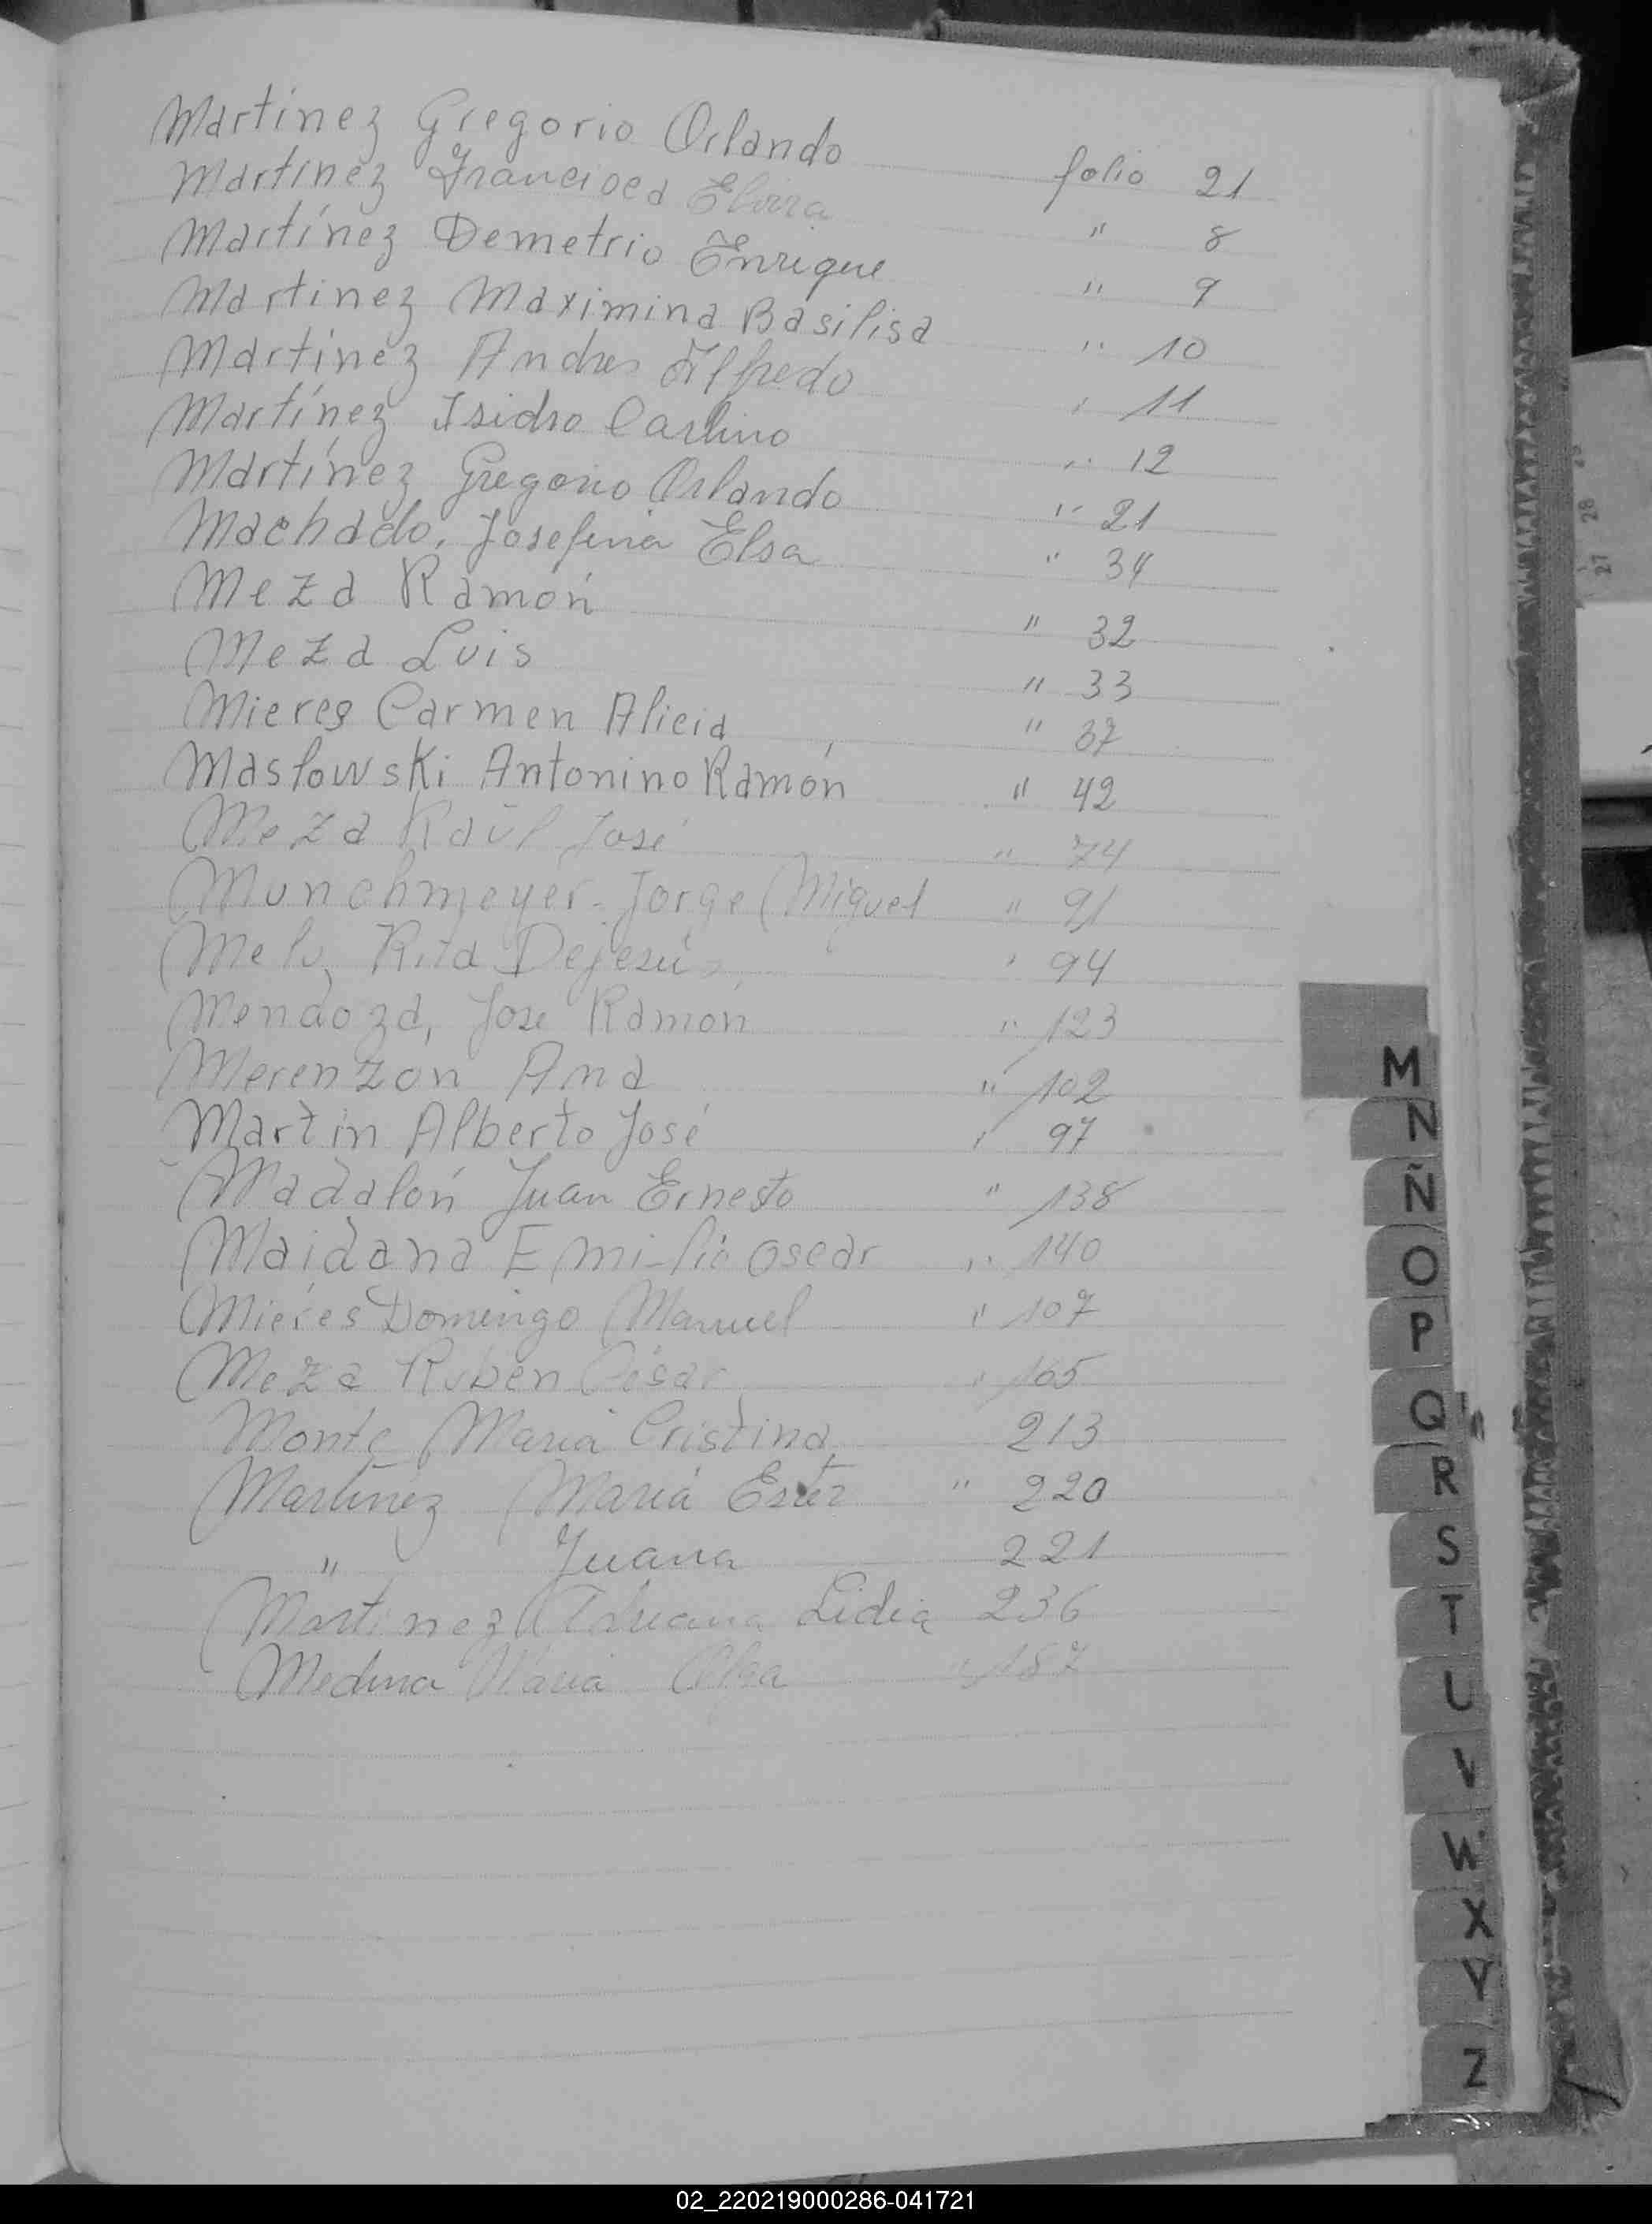 Martínez Gregorio Orlando folio 21
Martínez Francisca Elvira " 8
Martínez Demetrio Enrique " 9
Martinez Maximina Basilisa " 10
Martinez Andres Alfredo " 11
Martínez Isidro Carlino " 12
Martínez Gregorio Orlando " 21
Machado, Josefina Elsa " 34
Meza Ramón " 32
Meza Luis " 33
Mieres Carmen Alicia " 37
Masłowski Antonino Ramón " 42
Meza Raúl José " 74
Munchmeyer Jorge Miguel " 91
Rita Dejesús " 94
Mendoza, Jose Ramón " 123
Merenzon Ana " 102
Martin Alberto José " 97
Madalón Juan Ernesto " 138
Maidana Emilio Oscar " 140
Mieres Domingo Manuel " 107
Meza Ruben César " 165
Monte María Cristina 213
Martínez María Ester " 220
" Juana 221
Martinez Adriana Lidia 236
Medina María Olga " 187
M
N
Ñ
O
P
Q
R
S
T
U
V
W
X
Y
Z
28
27
02_220219000286-041721